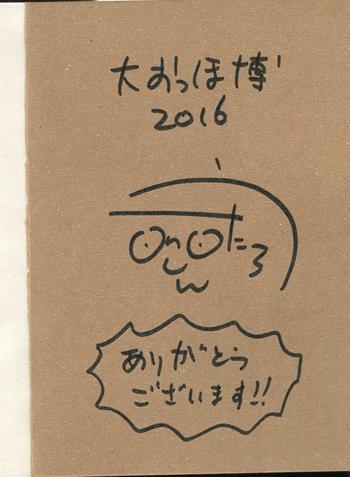 大おっほ博
2016
OnOたろ
しん
ありがとう
ございます!!